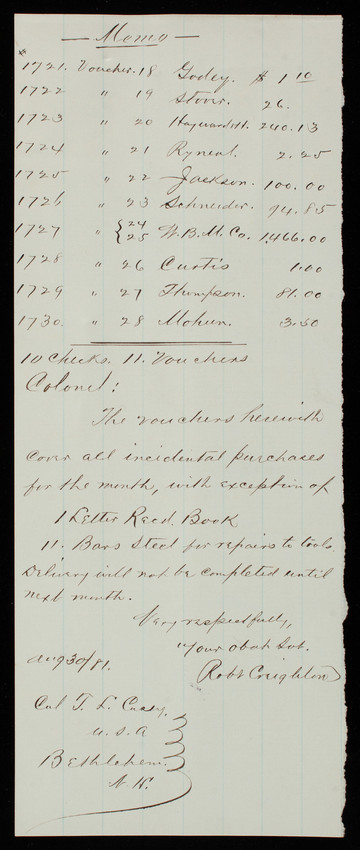 — Memo —
1721. Voucher. 18 Godey. $ 1 10
1722 " 19 Stover. 26.
1723 " 20 Hayward & H. 240.13
1724 " 21 Ryneal. 2.25
1725 " 22 Jackson. 100.00
1726 " 23 Schneider. 94.85
1727 " {24 25 W. B. M. Co. 1,466.00
1728 " 26 Curtis 1.00
1729 " 27 Thompson. 81.00
1730. " 28 Mohun. 3.50
10 Checks. 11. Vouchers
Colonel:
The vouchers herewith
cover all incidental purchases
for the month, with exception of
1 Letter Recd. Book
11. Bars Steel for repairs to tools.
Delivery will not be completed until
next month.
Very respectfully,
Your obdt Svt.
Aug 30/81.
Robt Creighton
Col T. L. Casey.
U.S.A
Bethlehem.
N.H.